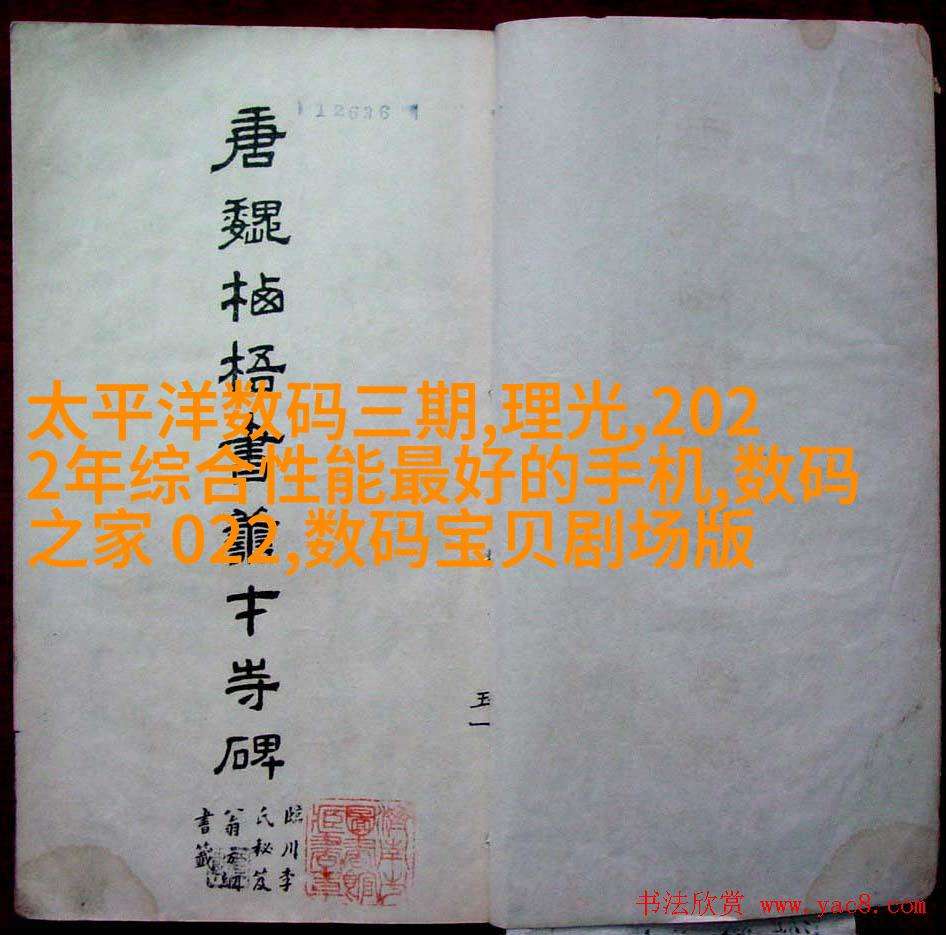 12636
唐魏栖梧書善才寺碑
臨川李
氏秘笈
翁方綱
書籤
太平洋数码三期,理光,202
2年综合性能最好的手机,数码
之家 022,数码宝贝剧场版
书法欣赏 www.yac8.com